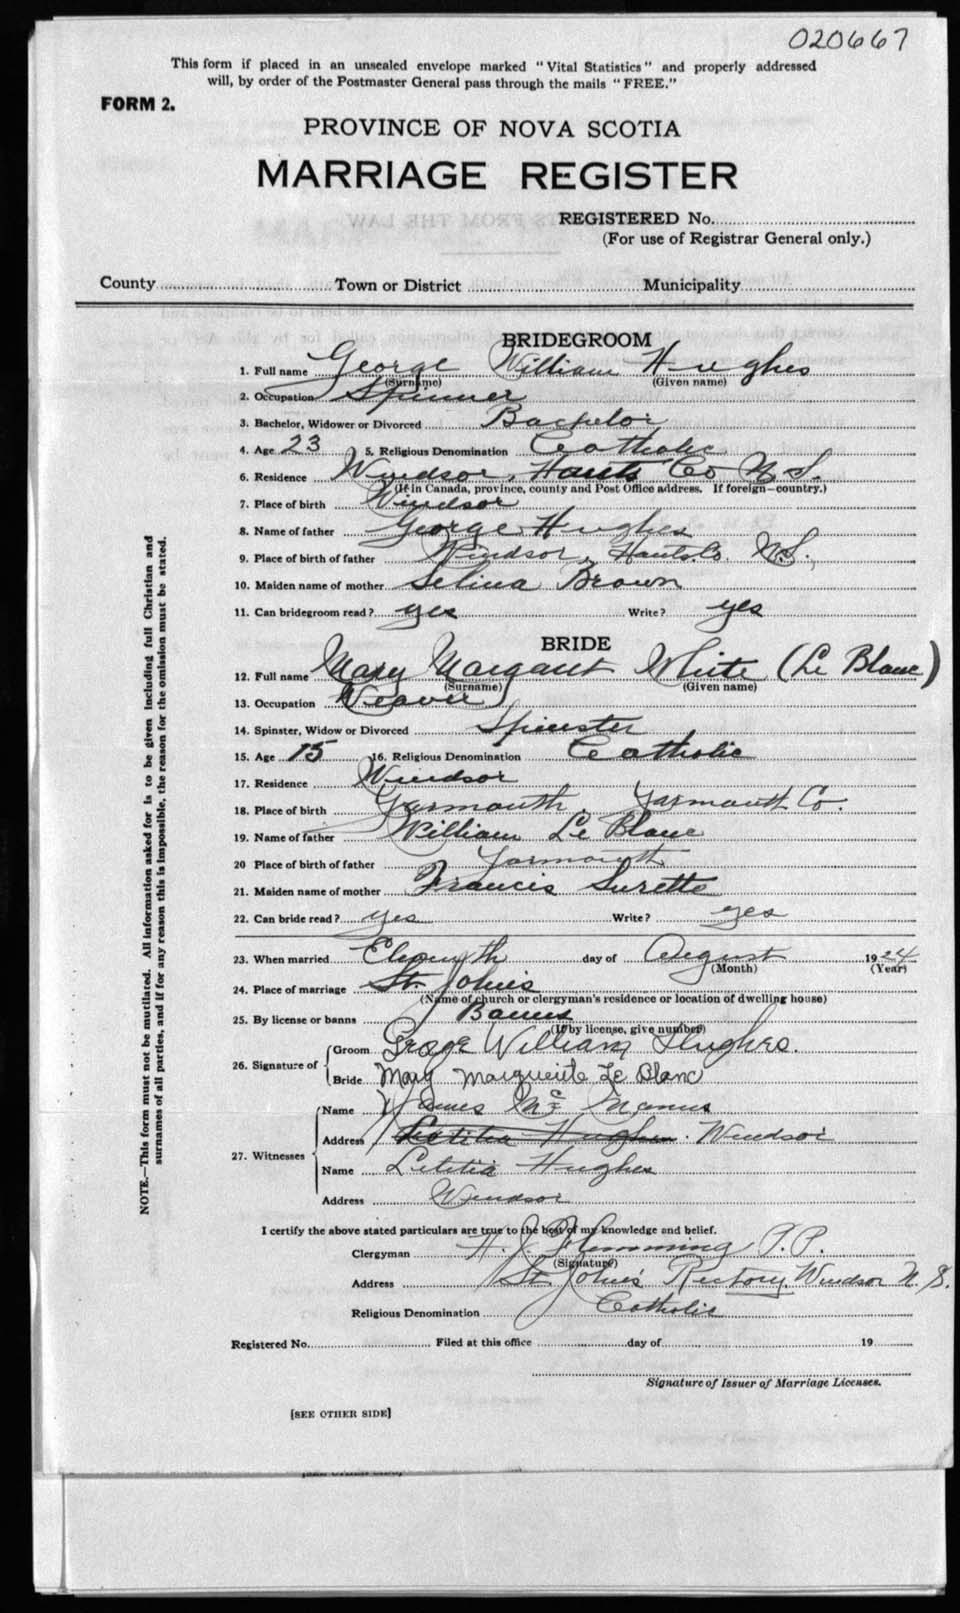 020667
This form if placed in an unsealed envelope marked "Vital Statistics" and properly addressed
will, by order of the Postmaster General pass through the mails "FREE."
FORM 2.
PROVINCE OF NOVA SCOTIA
MARRIAGE REGISTER
REGISTERED No.
(For use of Registrar General only.)
County Town or District Municipality
BRIDEGROOM
1. Full name George William Hughes
(Surname) (Given name)
2. Occupation Spinner
3. Bachelor, Widower or Divorced Bachelor
4. Age 23 5. Religious Denomination Catholic
6. Residence Windsor, Hants Co N.S.
(If in Canada, province, county and Post Office address. If foreign—country.)
7. Place of birth Windsor
8. Name of father George Hughes
9. Place of birth of father Windsor, Hants Co. N.S.,
10. Maiden name of mother Selina Brown
11. Can bridegroom read? yes Write? yes
BRIDE
12. Full name Mary Margaret White (Le Blanc)
(Surname) (Given name)
13. Occupation Weaver
14. Spinster, Widow or Divorced Spinster
15. Age 15 16. Religious Denomination Catholic
17. Residence Windsor
18. Place of birth Yarmouth, Yarmouth Co.
19. Name of father William Le Blanc
20 Place of birth of father Yarmouth
21. Maiden name of mother Francis Surette
22. Can bride read? yes Write? yes
23. When married Eleventh day of August 1924
(Month) (Year)
24. Place of marriage St. John's
(Name of church or clergyman's residence or location of dwelling house)
25. By license or banns Banns
(If by license, give number)
26. Signature of Groom George William Hughes.
Bride Mary Marguerite Le Blanc
27. Witnesses Name James Mc Manus
Address Letitia Hughes. Windsor
Name Letitia Hughes
Address Windsor
I certify the above stated particulars are true to the best of my knowledge and belief.
Clergyman H. J. Flemming P.P.
(Signature)
Address St John's Rectory, Windsor N.S.
Religious Denomination Catholic
Registered No. Filed at this office day of 19
Signature of Issuer of Marriage Licenses.
[SEE OTHER SIDE]
NOTE.—This form must not be mutilated. All information asked for is to be given including full Christian and
surnames of all parties, and if for any reason this is impossible, the reason for the omission must be stated.